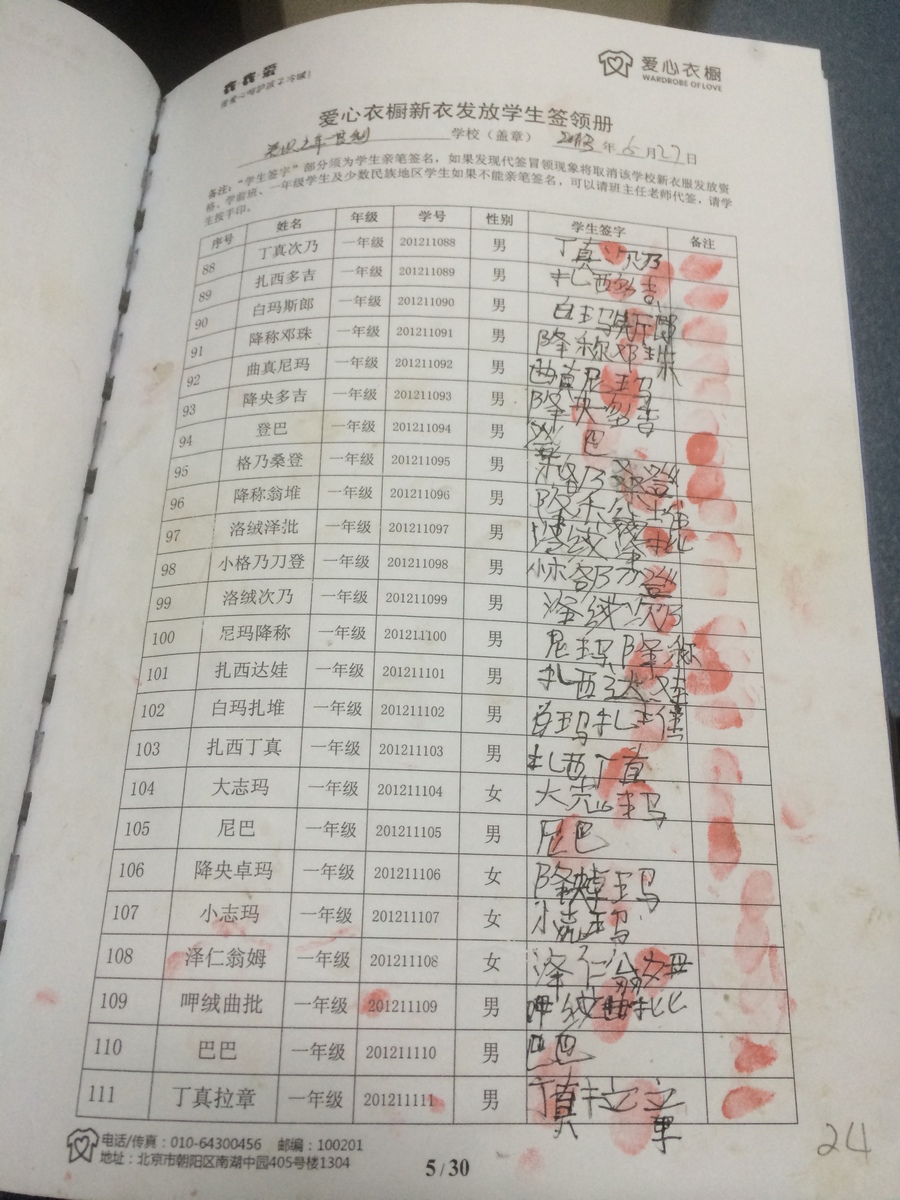 衣·衣·爱
用爱心呵护孩子冷暖!
爱心衣橱
WARDROBE OF LOVE
爱心衣橱新衣发放学生签领册
学校（盖章） 2013 年 6 月 27 日
备注："学生签字"部分须为学生亲笔签名，如果发现代签冒领现象将取消该学校新衣服发放资
格、学前班、一年级学生及少数民族地区学生如果不能亲笔签名，可以请班主任老师代签，请学
生按手印。
序号 姓名 年级 学号 性别 学生签字 备注
88 丁真次乃 一年级 201211088 男 丁真次乃
89 扎西多吉 一年级 201211089 男 扎西多吉
90 白玛斯郎 一年级 201211090 男 白玛斯郎
91 降称邓珠 一年级 201211091 男 降称邓珠
92 曲真尼玛 一年级 201211092 男 曲真尼玛
93 降央多吉 一年级 201211093 男 降央多吉
94 登巴 一年级 201211094 男 登巴
95 格乃桑登 一年级 201211095 男 格乃桑登
96 降称翁堆 一年级 201211096 男 降称翁堆
97 洛绒泽批 一年级 201211097 男 洛绒泽批
98 小格乃刀登 一年级 201211098 男 小格乃刀登
99 洛绒次乃 一年级 201211099 男 洛绒次乃
100 尼玛降称 一年级 201211100 男 尼玛降称
101 扎西达娃 一年级 201211101 男 扎西达娃
102 白玛扎堆 一年级 201211102 男 白玛扎堆
103 扎西丁真 一年级 201211103 男 扎西丁真
104 大志玛 一年级 201211104 女 大志玛
105 尼巴 一年级 201211105 男 尼巴
106 降央卓玛 一年级 201211106 女 降央卓玛
107 小志玛 一年级 201211107 女 小志玛
108 泽仁翁姆 一年级 201211108 女 泽仁翁姆
109 呷绒曲批 一年级 201211109 男 呷绒曲批
110 巴巴 一年级 201211110 男 巴巴
111 丁真拉章 一年级 201211111 男 丁真拉章
电话/传真：010-64300456 邮编：100201
地址：北京市朝阳区南湖中园405号楼1304
5 / 30
24